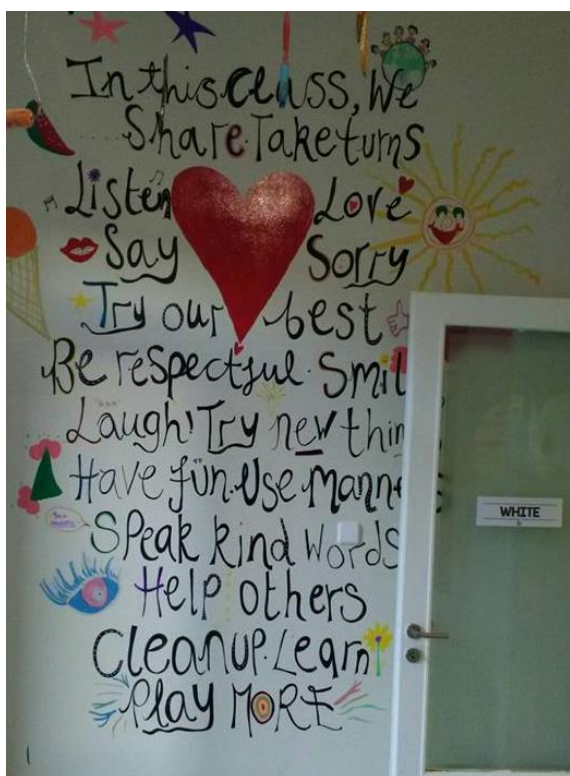 In this class, We
Share. Take turns
Listen Love
Say Sorry
Try our best
Be respectful. Smil
Laugh! Try new thin
Have fün. Use Manne s
Speak kind words
Help others
Clean up. Learn
Play MORE
WHITE